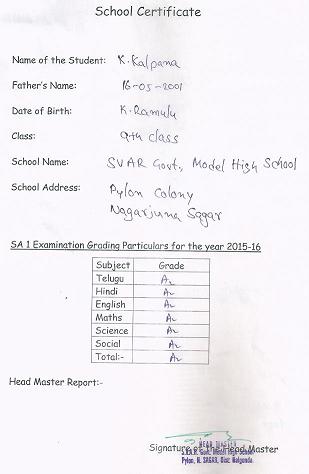 School Certificate
Name of the Student: K. Kalpana
Father's Name: 16-05-2001
Date of Birth: K. Ramulu
Class: 9th class
School Name: SVAR Govt., Model High School
School Address: Pylon Colony
Nagarjuna Sagar
SA 1 Examination Grading Particulars for the year 2015-16
Subject Grade
Telugu A2
Hindi A2
English A2
Maths A2
Science A2
Social A2
Total:- A2
Head Master Report:-
Signature of the Head Master
HEAD MASTER
Govt. Model High School
Pylon, N. SAGAR, Dist: Nalgonda.